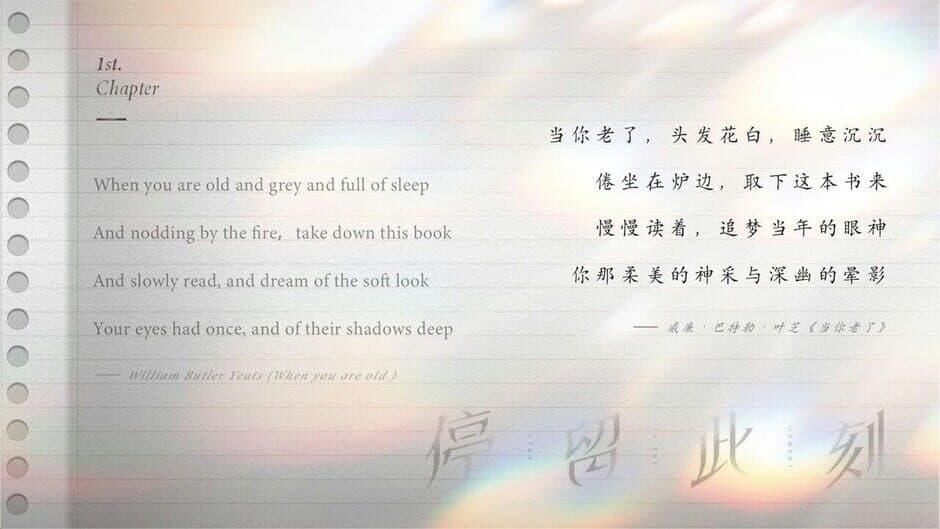 1st.
Chapter
When you are old and grey and full of sleep
And nodding by the fire，take down this book
And slowly read, and dream of the soft look
Your eyes had once, and of their shadows deep
—— William Butler Yeats (When you are old )
当你老了，头发花白，睡意沉沉
倦坐在炉边，取下这本书来
慢慢读着，追梦当年的眼神
你那柔美的神采与深幽的晕影
—— 威廉·巴特勒·叶芝《当你老了》
停留此刻